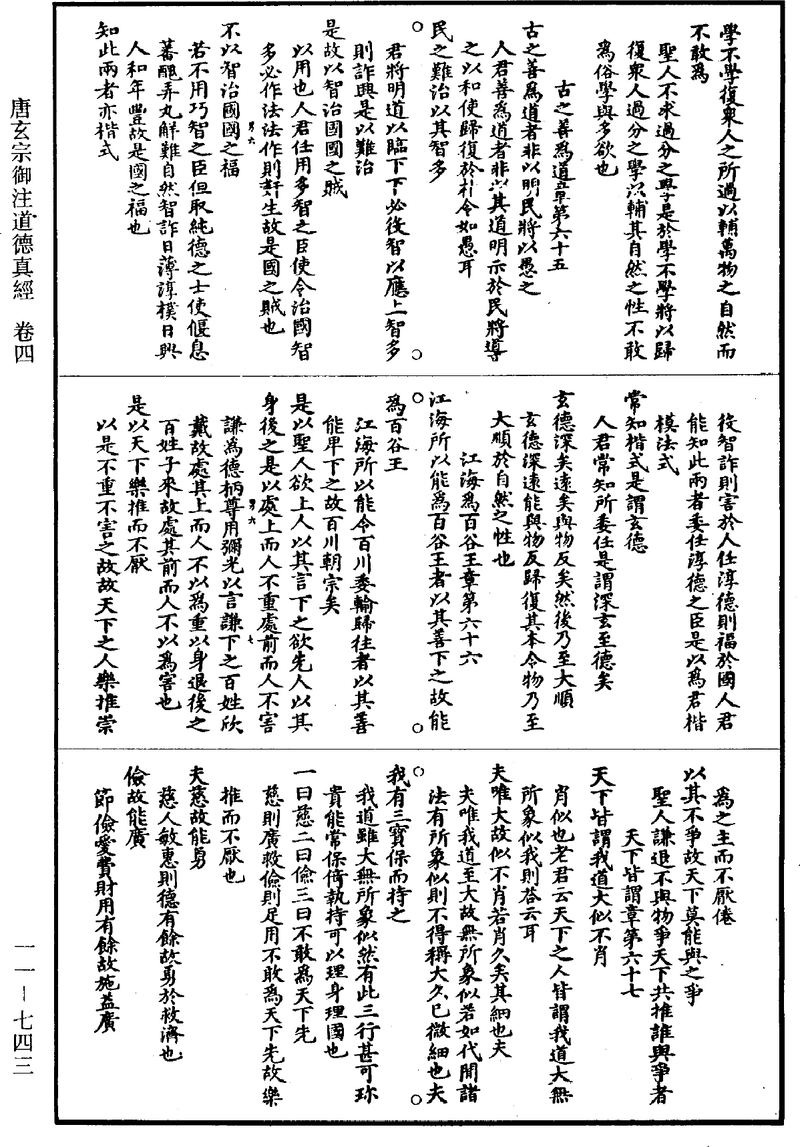 學不學復衆人之所過以輔萬物之自然而
不敢為
聖人不求過分之學是於學不學將以歸
復衆人過分之學以輔其自然之性不敢
為俗學與多欲也
古之善為道章第六十五
古之善為道者非以明民將以愚之
人君善為道者非以其道明示於民將導
之以和使歸復於朴令如愚耳
民之難治以其智多
君將明道以臨下下必役智以應上智多
則詐興是以難治
是故以智治國國之賊
以用也人君任用多智之臣使令治國智
多必作法法作則姧生故是國之賊也
不以智治國國之福
若不用巧智之臣但取純德之士使偃息
蕃魋弄丸解難自然智詐日薄淳樸日興
人和年豐故是國之福也
知此兩者亦楷式
役智詐則害於人任淳德則福於國人君
能知此兩者委任淳德之臣是以為君楷
模法式
常知楷式是謂玄德
人君常知所委任是謂深玄至德矣
玄德深矣遠矣與物反矣然後乃至大順
玄德深遠能與物反歸復其本令物乃至
大順於自然之性也
江海為百谷王章第六十六
江海所以能為百谷王者以其善下之故能
為百谷王
江海所以能令百川委輸歸往者以其善
能卑下之故百川朝宗矣
是以聖人欲上人以其言下之欲先人以其
身後之是以處上而人不重處前而人不害
謙為德柄尊用彌光以言謙下之百姓欣
戴故處其上而人不以為重以身退後之
百姓子來故處其前而人不以為害也
是以天下樂推而不厭
以是不重不害之故故天下之人樂推崇
為之主而不厭倦
以其不爭故天下莫能與之爭
聖人謙退不與物爭天下共推誰與爭者
天下皆謂章第六十七
天下皆謂我道大似不肖
肖似也老君云天下之人皆謂我道大無
所象似我則荅云耳
夫唯大故似不肖若肖久矣其細也夫
夫唯我道至大故無所象似若如代間諸
法有所象似則不得稱大久已微細也夫
我有三寶保而持之
我道雖大無所象似然有此三行甚可珍
貴能常保倚執持可以理身理國也
一曰慈二曰儉三曰不敢為天下先
慈則廣救儉則足用不敢為天下先故樂
推而不厭也
夫慈故能勇
慈人敏惠則德有餘故勇於救濟也
儉故能廣
節儉愛費財用有餘故施益廣
唐玄宗御注道德真經　卷四
一一－七四三